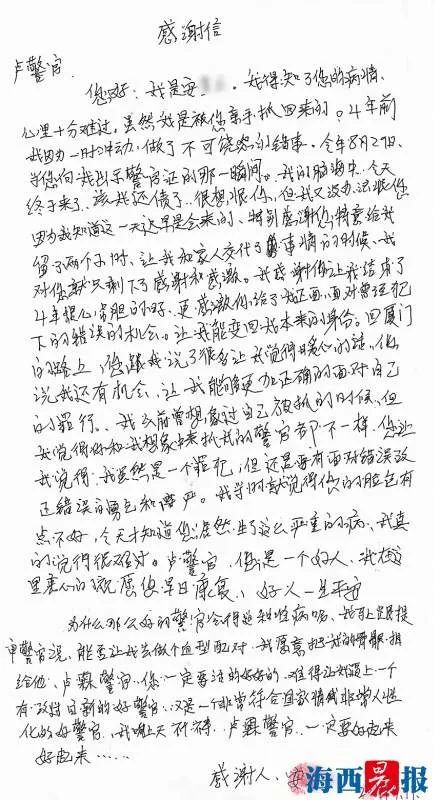 感谢信
卢警官:
您好!我是安 。我得知了您的病情、
心里十分难过,虽然我是被您亲手抓回来的。4年前
我因为一时冲动,做了不可饶恕的错事。今年8月29日、
当您向我出示警官证的那一瞬间。我的脑海中、今天
终于来了、该我还债了。很想恨你,但我又没办法恨您
因为我知道这一天迟早是会来的、特别感谢您,特意给我
留了两个小时、让我和家人交代了事情的时候、我
对您就只剩下了感谢和感激。我感谢你让我结束了
4年提心吊胆的日子、更感激你给了我正面、面对曾经犯
下的错误的机会。让我能变回我本来的身份。回厦门
的路上,您跟我说了很多让我觉得暖心的话,您
说我还有机会、让我能够更加正确的面对自己
的罪行、我之前曾想象过自己被抓的时候、但
我觉得你和我想象中来抓我的警官都不一样、您让
我觉得、我虽然是一个罪犯,但还是要有面对错误改
正错误的勇气和尊严。我当时就觉得你的脸色有
点不好,今天才知道您居然生了这么严重的病、我真
的觉得很难过。卢警官、您是一个好人、我在这
里衷心的祝愿您早日康复、好人一生平安
为什么那么好的警官会得这种病呢、我马上跟提
申警官说,能否让我去做个血型配对、我愿意把我的骨髓捐
给他、卢警官、您一定要活的好好的、难得让我遇上一个
有 的好警官、又是一个非常符合国家情 非常人性
化的好警官、我 上天 、卢警官、一定要好起来
好起来……
感谢人:安
海西晨报